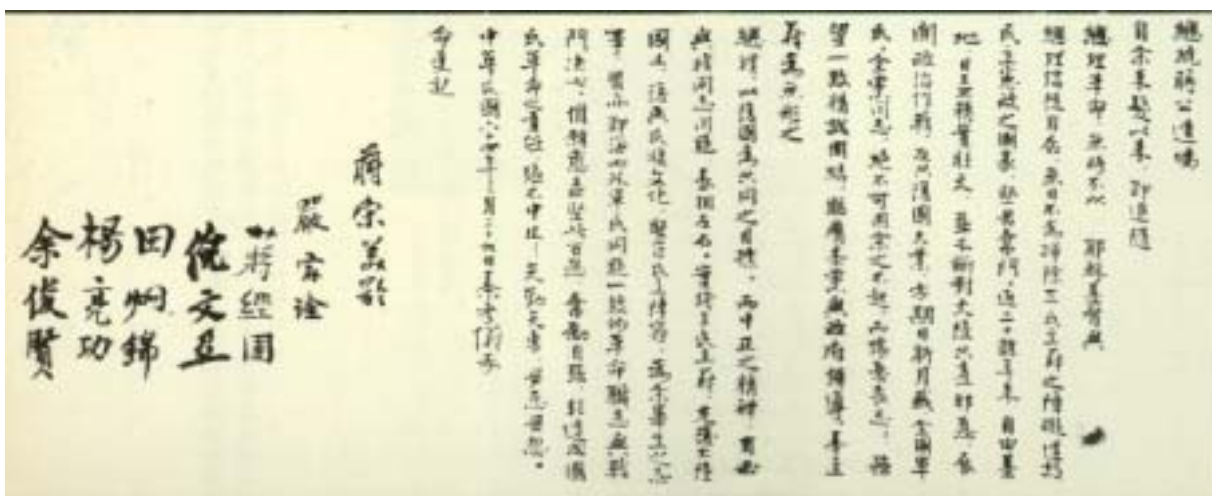 總統蔣公遺囑
自余束髮以來，即追隨
總理革命，無時不以　耶穌基督與
總理信徒自居，無日不為掃除三民主義之障礙，建設
民主憲政之國家，艱苦奮鬥。近二十餘年來，自由基
地，日益精實壯大，並不斷對大陸共產邪惡，展
開政治作戰，反共復國大業，方期日新月盛，全國軍
民，全黨同志，絕不可因余之不起，而懷憂喪志，務
望一致精誠團結，服膺本黨與政府領導，奉主
義為無形之
總理，以復國為共同之目標，而中正之精神，自必
與我同志同胞，長相左右。實踐三民主義，光復大陸
國土，復興民族文化，堅守民主陣容，為余畢生之志
事，實亦即海內外軍民同胞一致的革命職志與戰
鬥決心。惟願愈益堅此百忍，奮勵自強，非達成國
民革命之責任，絕不中止，矢勤矢勇，毋怠毋忽。
中華民國六十四年三月二十九日秦孝儀承
命受記
蔣宋美齡
嚴家淦
蔣經國
倪文亞
田炯錦
楊亮功
余俊賢